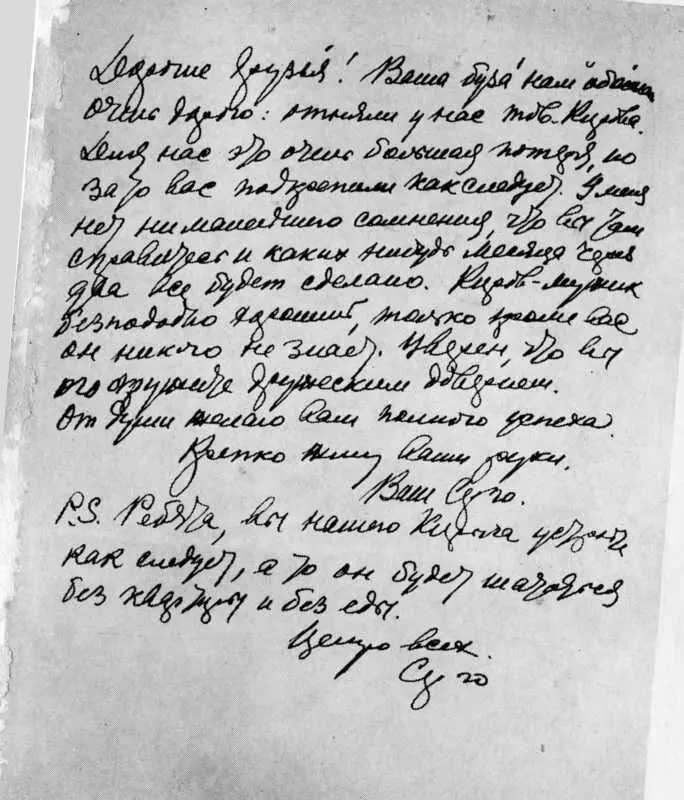 Дорогие друзья! Ваша буза нам обошлась
очень дорого: отняли у нас тов. Кирова.
Для нас это очень большая потеря, но
зато вас подкрепили как следует. У меня
нет ни малейшего сомнения, что вы там
справитесь и каких нибудь месяца через
два все будет сделано. Киров-мужик
бесподобно хороший, только кроме вас
он никого не знает. Уверен, что вы
его окружите дружеским доверием.
От души желаю вам полного успеха.
Крепко жму ваши руки.
Ваш Серго.
P.S. Ребята, вы нашего Кирыча устройте
как следует, а то он будет шататься
без квартиры и без еды.
Целую всех.
Серго